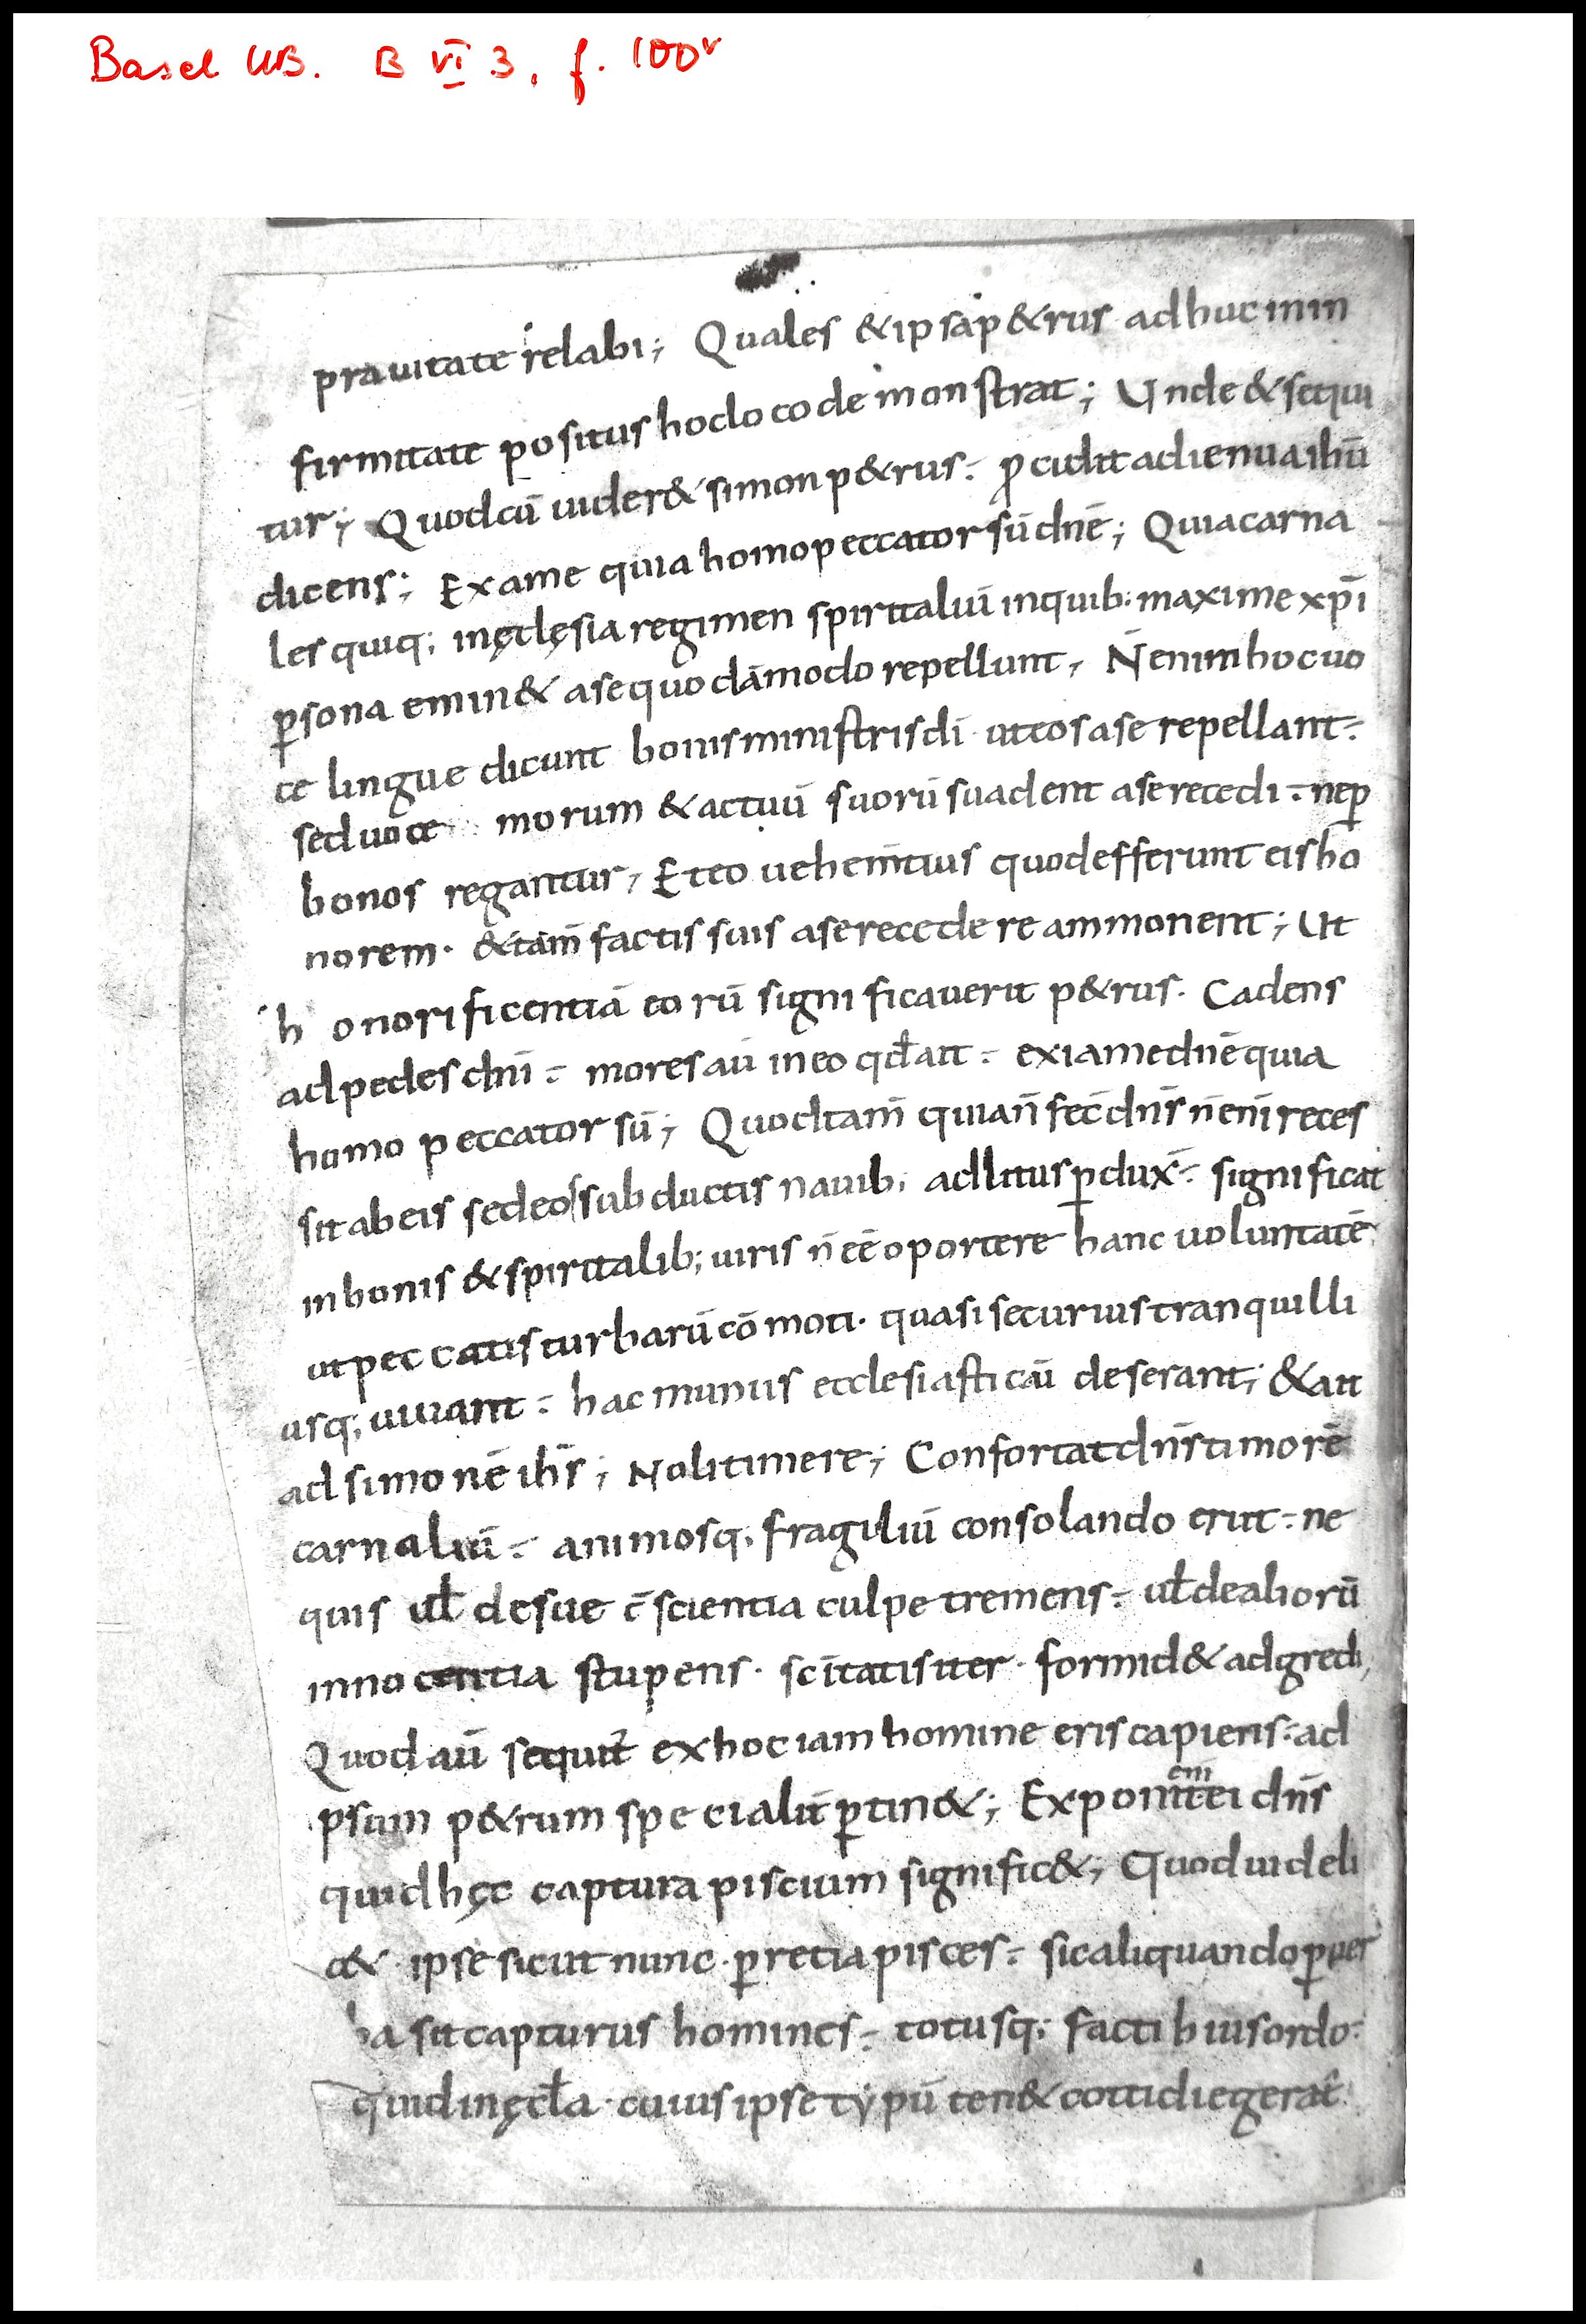 Basel UB. B VI 3, f. 100v
prauitate relabi; Quales & ipsa p&rus adhuc in in
firmitate positus hoc loco demonstrat; Unde & sequi
tur; Quod cū uider& simon p&rus. ꝓcidit ad ienua ihū
dicens; Exi a me quia homo peccator sū dn̄e; Quia carna
les quiq; in ęclęsia regimen spiritaliū in quib; maxime xp̄i
ꝑsona emin& a se quodāmodo repellunt, N̄ enim hoc uo
ce lingue dicunt bonis ministris dī ut eos a se repellant.
sed uoce morum & actuū suorū suadent a se recedi. ne ꝑ
bonos regantur, Et eo uehem̄tius quod efferunt eis ho
norem. & tam̄ factis suis a se recedere ammonent; Ut
honorificentiā eorū significauerit p&rus. Cadens
ad pedes dn̄i. mores aū in eo qđ ait. exi a me dn̄e quia
homo peccator sū; Quod tam̄ quia n̄ fec̄ dn̄s n̄ eni reces
sit ab eis sed eos subductis nauib; ad litus ꝑdux̄. significat
in bonis & spiritalib; uiris n̄ eē oportere hanc uoluntatē
ut peccatis turbarū cōmoti. quasi securius tranquilli
usq; uiuant. hac munus ecclesiasticū deserant; & ait
ad simonē ihs̄; Noli timere; Confortat dn̄s timorē
carnaliū. animosq; fragiliū consolando erūt. ne
quis ul̄ de sue c̄scientia culpe tremens. ul̄ de aliorū
innocentia stupens. sc̄itatis iter. formid& adgredi,
Quod aū sequit̄ ex hoc iam homine eris capiens. ad
psum p&rum specialit̄ ꝑtin&; Exponit em ei dn̄s
quid hęc captura piscium signific&; Quod uideli
c& ipse sicut nunc. ꝑ retia pisces. sic aliquando ꝑ uer
ba sit capturus homines. totusq; facti huius ordo.
quid in ęcl̄a. cuius ipse typū ten& cottidie gerat̄